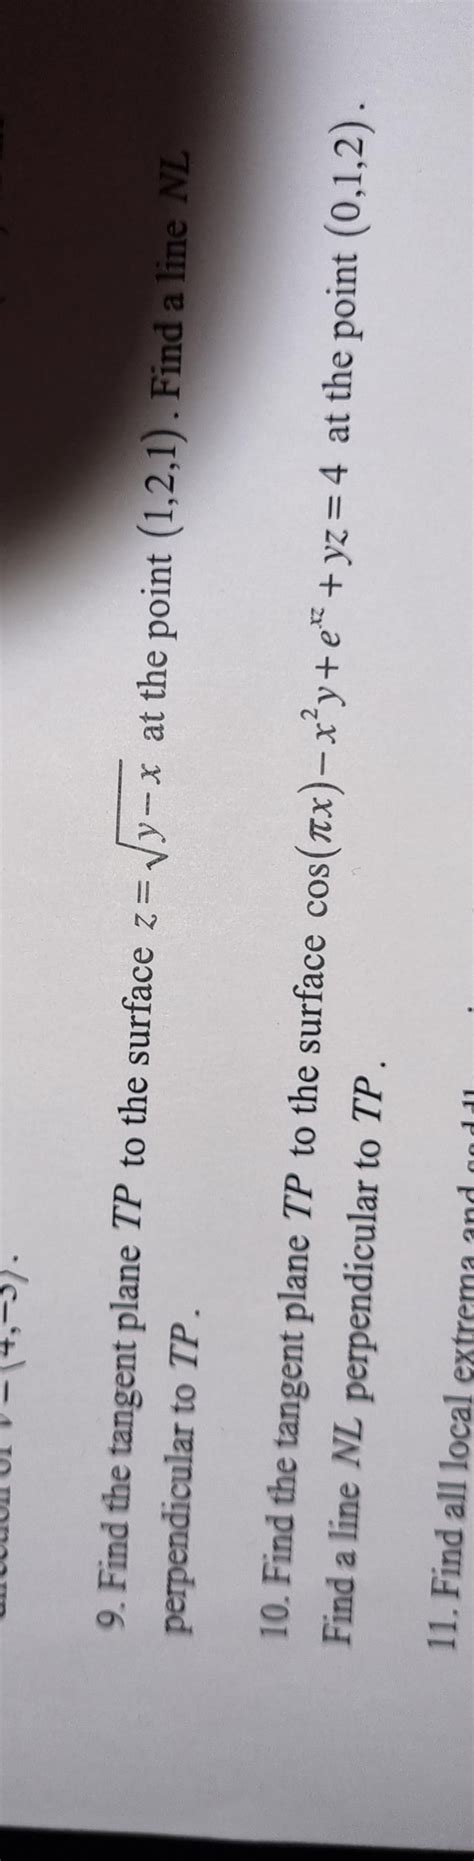 v = ⟨4, −3⟩.
9. Find the tangent plane TP to the surface z = √(y − x) at the point (1,2,1). Find a line NL
perpendicular to TP.
10. Find the tangent plane TP to the surface cos(πx) − x²y + eˣᶻ + yz = 4 at the point (0,1,2).
Find a line NL perpendicular to TP.
11. Find all local extrema and